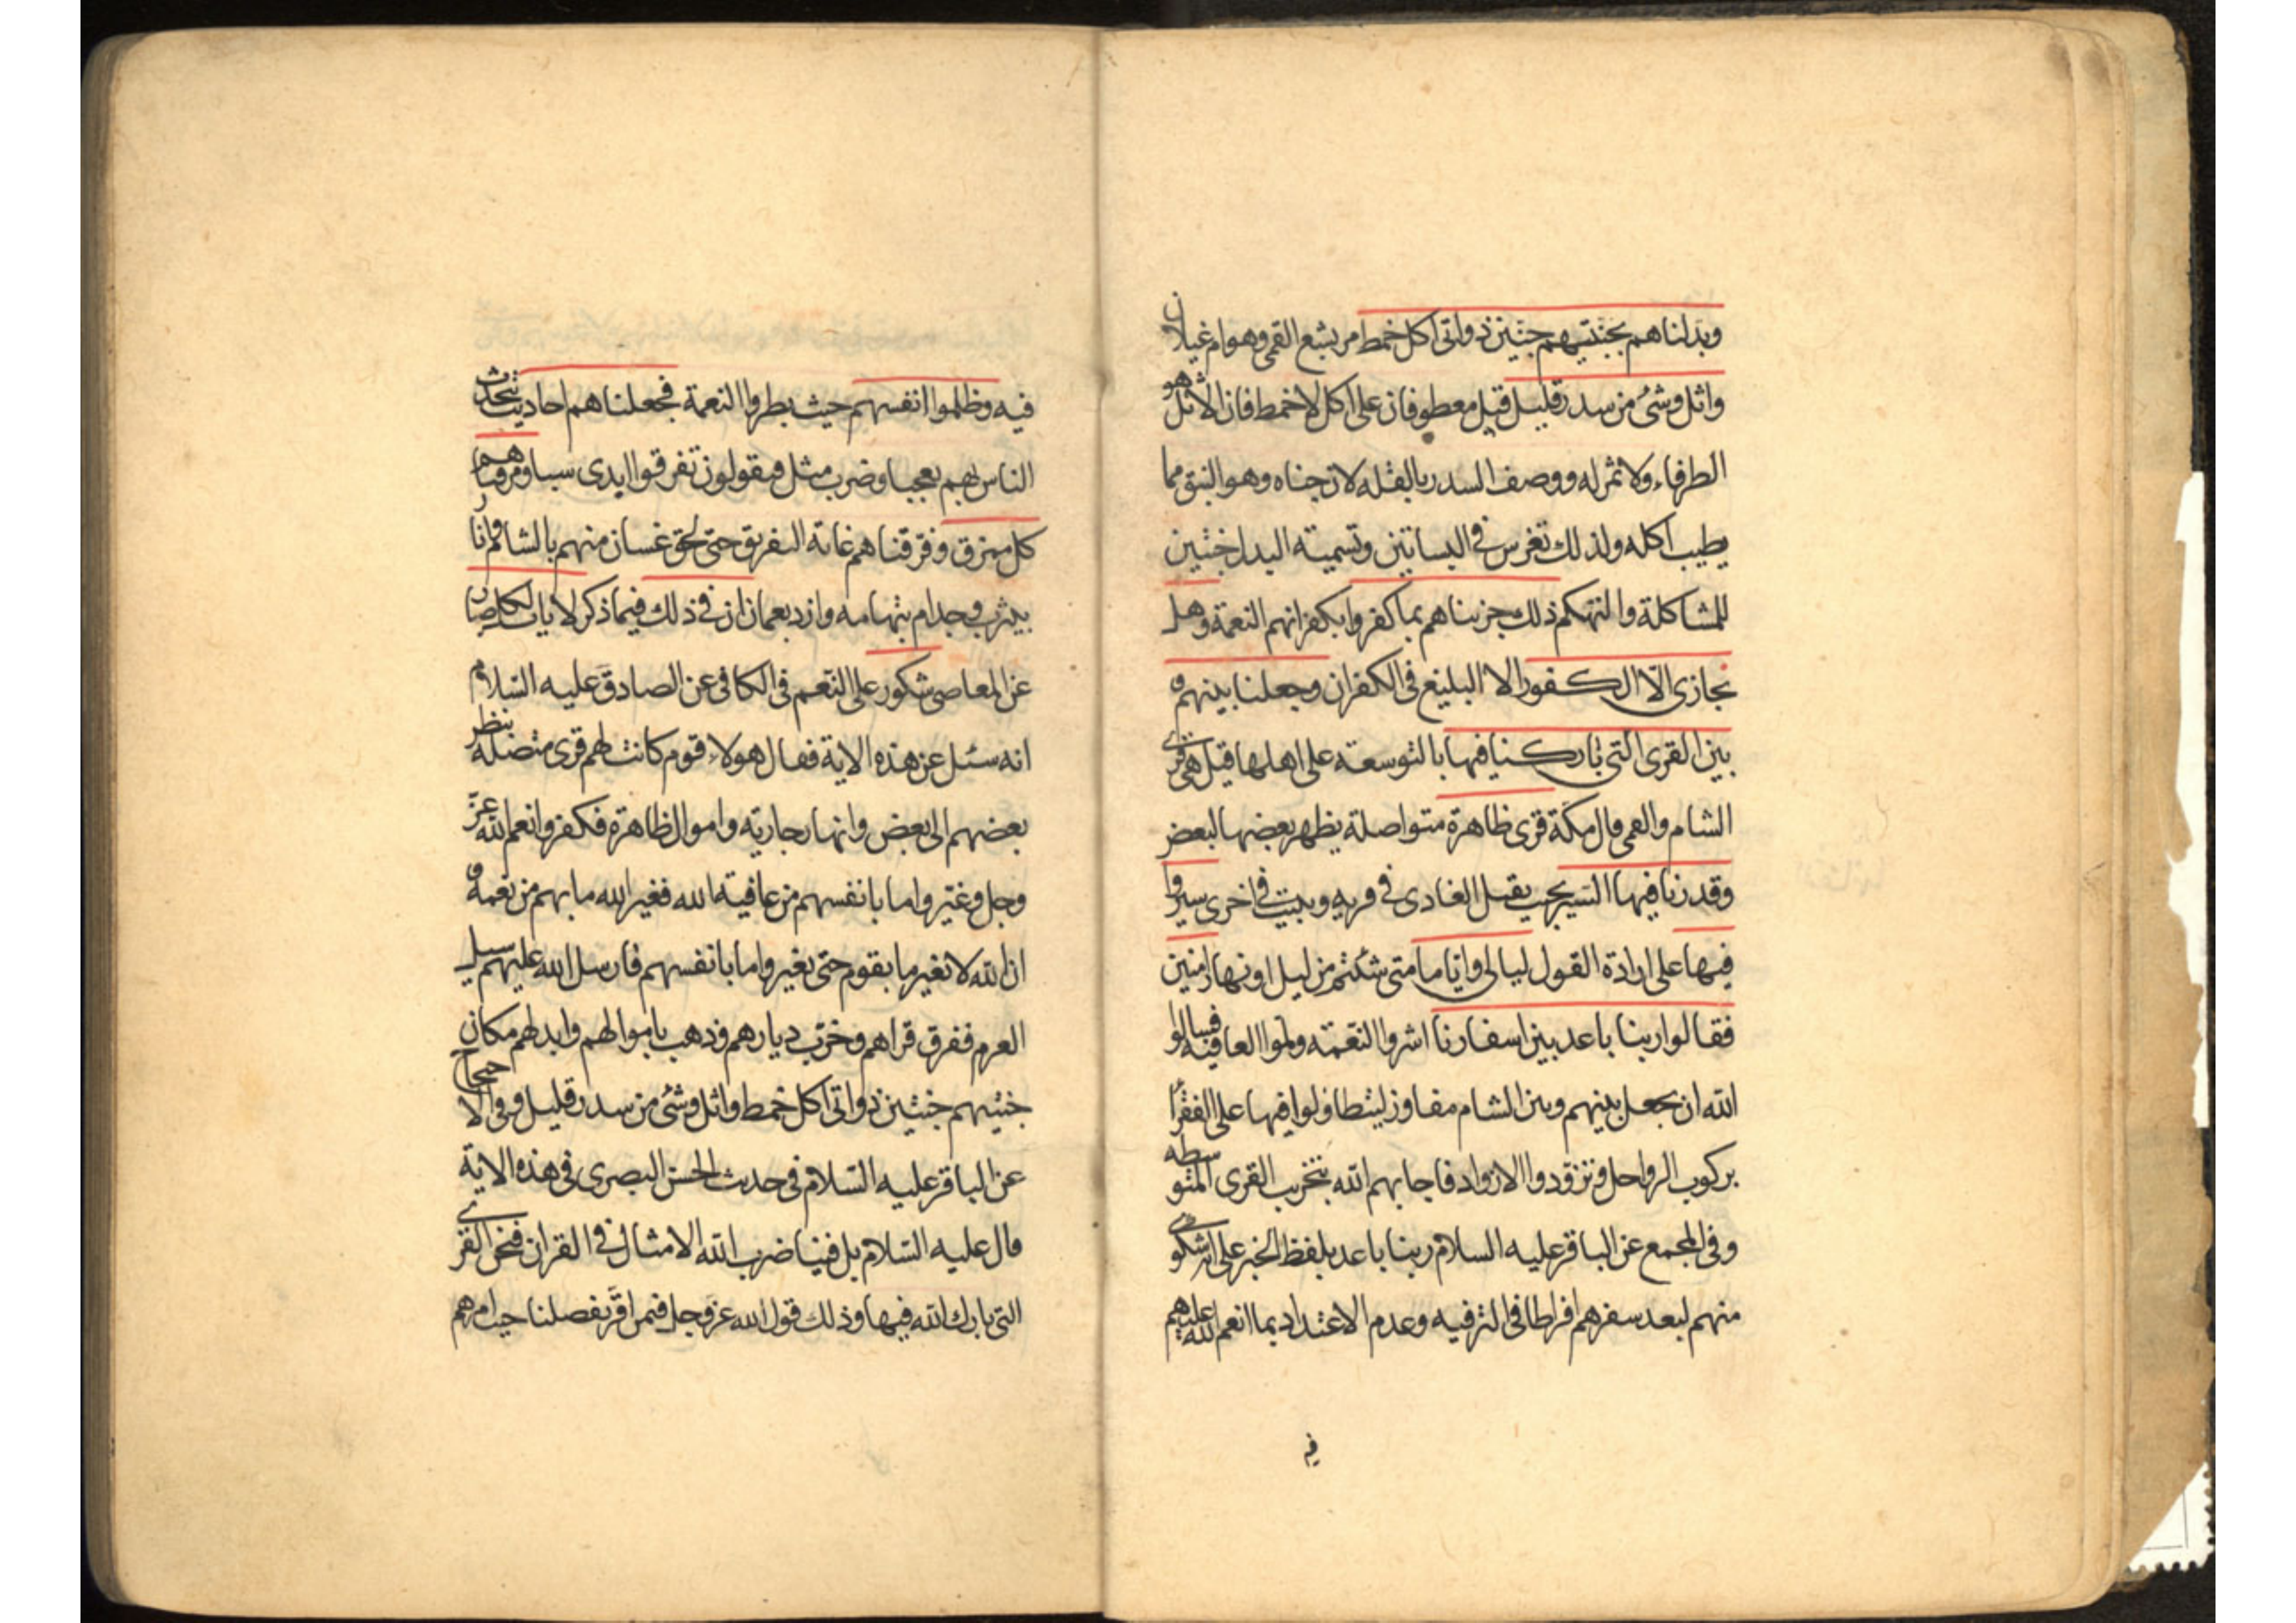 وبدلناهم بجنتيهم جنتين ذواتى اكل خمط مر بشع القمى وهو ام غيلان
واثل وشئ من سدر قليل قيل معطوفان على اكل لا خمط فان الاثل هو
الطرفاء ولا ثمر له ووصف السدر بالقله لان جناه وهو النبق مما
يطيب اكله ولذلك تغرس فى البساتين وتسمية البدل جنتين
للمشاكلة والتهكم ذلك جزيناهم بما كفروا بكفرانهم النعمة وهل
نجازى الا الكفور الا البليغ فى الكفران وجعلنا بينهم و
بين القرى التى باركنا فيها بالتوسعة على اهلها قيل هى قرى
الشام والقمى قال مكة قرى ظاهرة متواصلة يظهر بعضها لبعض
وقدرنا فيها السير بحيث يقيل الغادى فى قريه ويبيت فى اخرى سيروا
فيها على ارادة القول ليالى واياما متى شئتم من ليل او نهار امنين
فقالوا ربنا باعد بين اسفارنا اشروا النعمه وملوا العافيه فسالوا
الله ان يجعل بينهم وبين الشام مفاوز ليتطاولوا فيها على الفقرا
بركوب الرواحل وتزودوا الازواد فاجابهم الله بتخريب القرى المتوسطه
وفى المجمع عن الباقر عليه السلام ربنا باعد بلفظ الخبر على انه شكوى
منهم لبعد سفرهم افراطا فى الترفيه وعدم الاعتداد بما انعم الله عليهم
فيه
فيه وظلموا انفسهم حيث بطروا النعمة فجعلناهم احاديث يتحدث
الناس بهم تعجبا وضرب مثل فيقولون تفرقوا ايدى سبا ومزقناهم
كل ممزق وفرقناهم غاية التفريق حتى لحق غسان منهم بالشام وانمار
بيثرب وجدام بتهامه وازد بعمان ان فى ذلك فيما ذكر لايات لكل صبار
عن المعاصى شكور على النعم فى الكافى عن الصادق عليه السلام
انه سئل عن هذه الاية فقال هولاء قوم كانت لهم قرى متصلة ينظر
بعضهم الى بعض وانهار جارية واموال ظاهرة فكفروا نعم الله عز
وجل وغيروا ما بانفسهم من عافية الله فغير الله ما بهم من نعمة و
ان الله لا يغير ما بقوم حتى يغيروا ما بانفسهم فارسل الله عليهم سيل
العرم ففرق قراهم وخرب ديارهم وذهب باموالهم وابدلهم مكان
جنتيهم جنتين ذواتى اكل خمط واثل وشئ من سدر قليل وفى الاحتجاج
عن الباقر عليه السلام فى حديث الحسن البصرى فى هذه الاية
قال عليه السلام بل فينا ضرب الله الامثال فى القران فنحن القرى
التى بارك الله فيها وذلك قول الله عز وجل فيمن اقر بفضلنا حيث امرهم